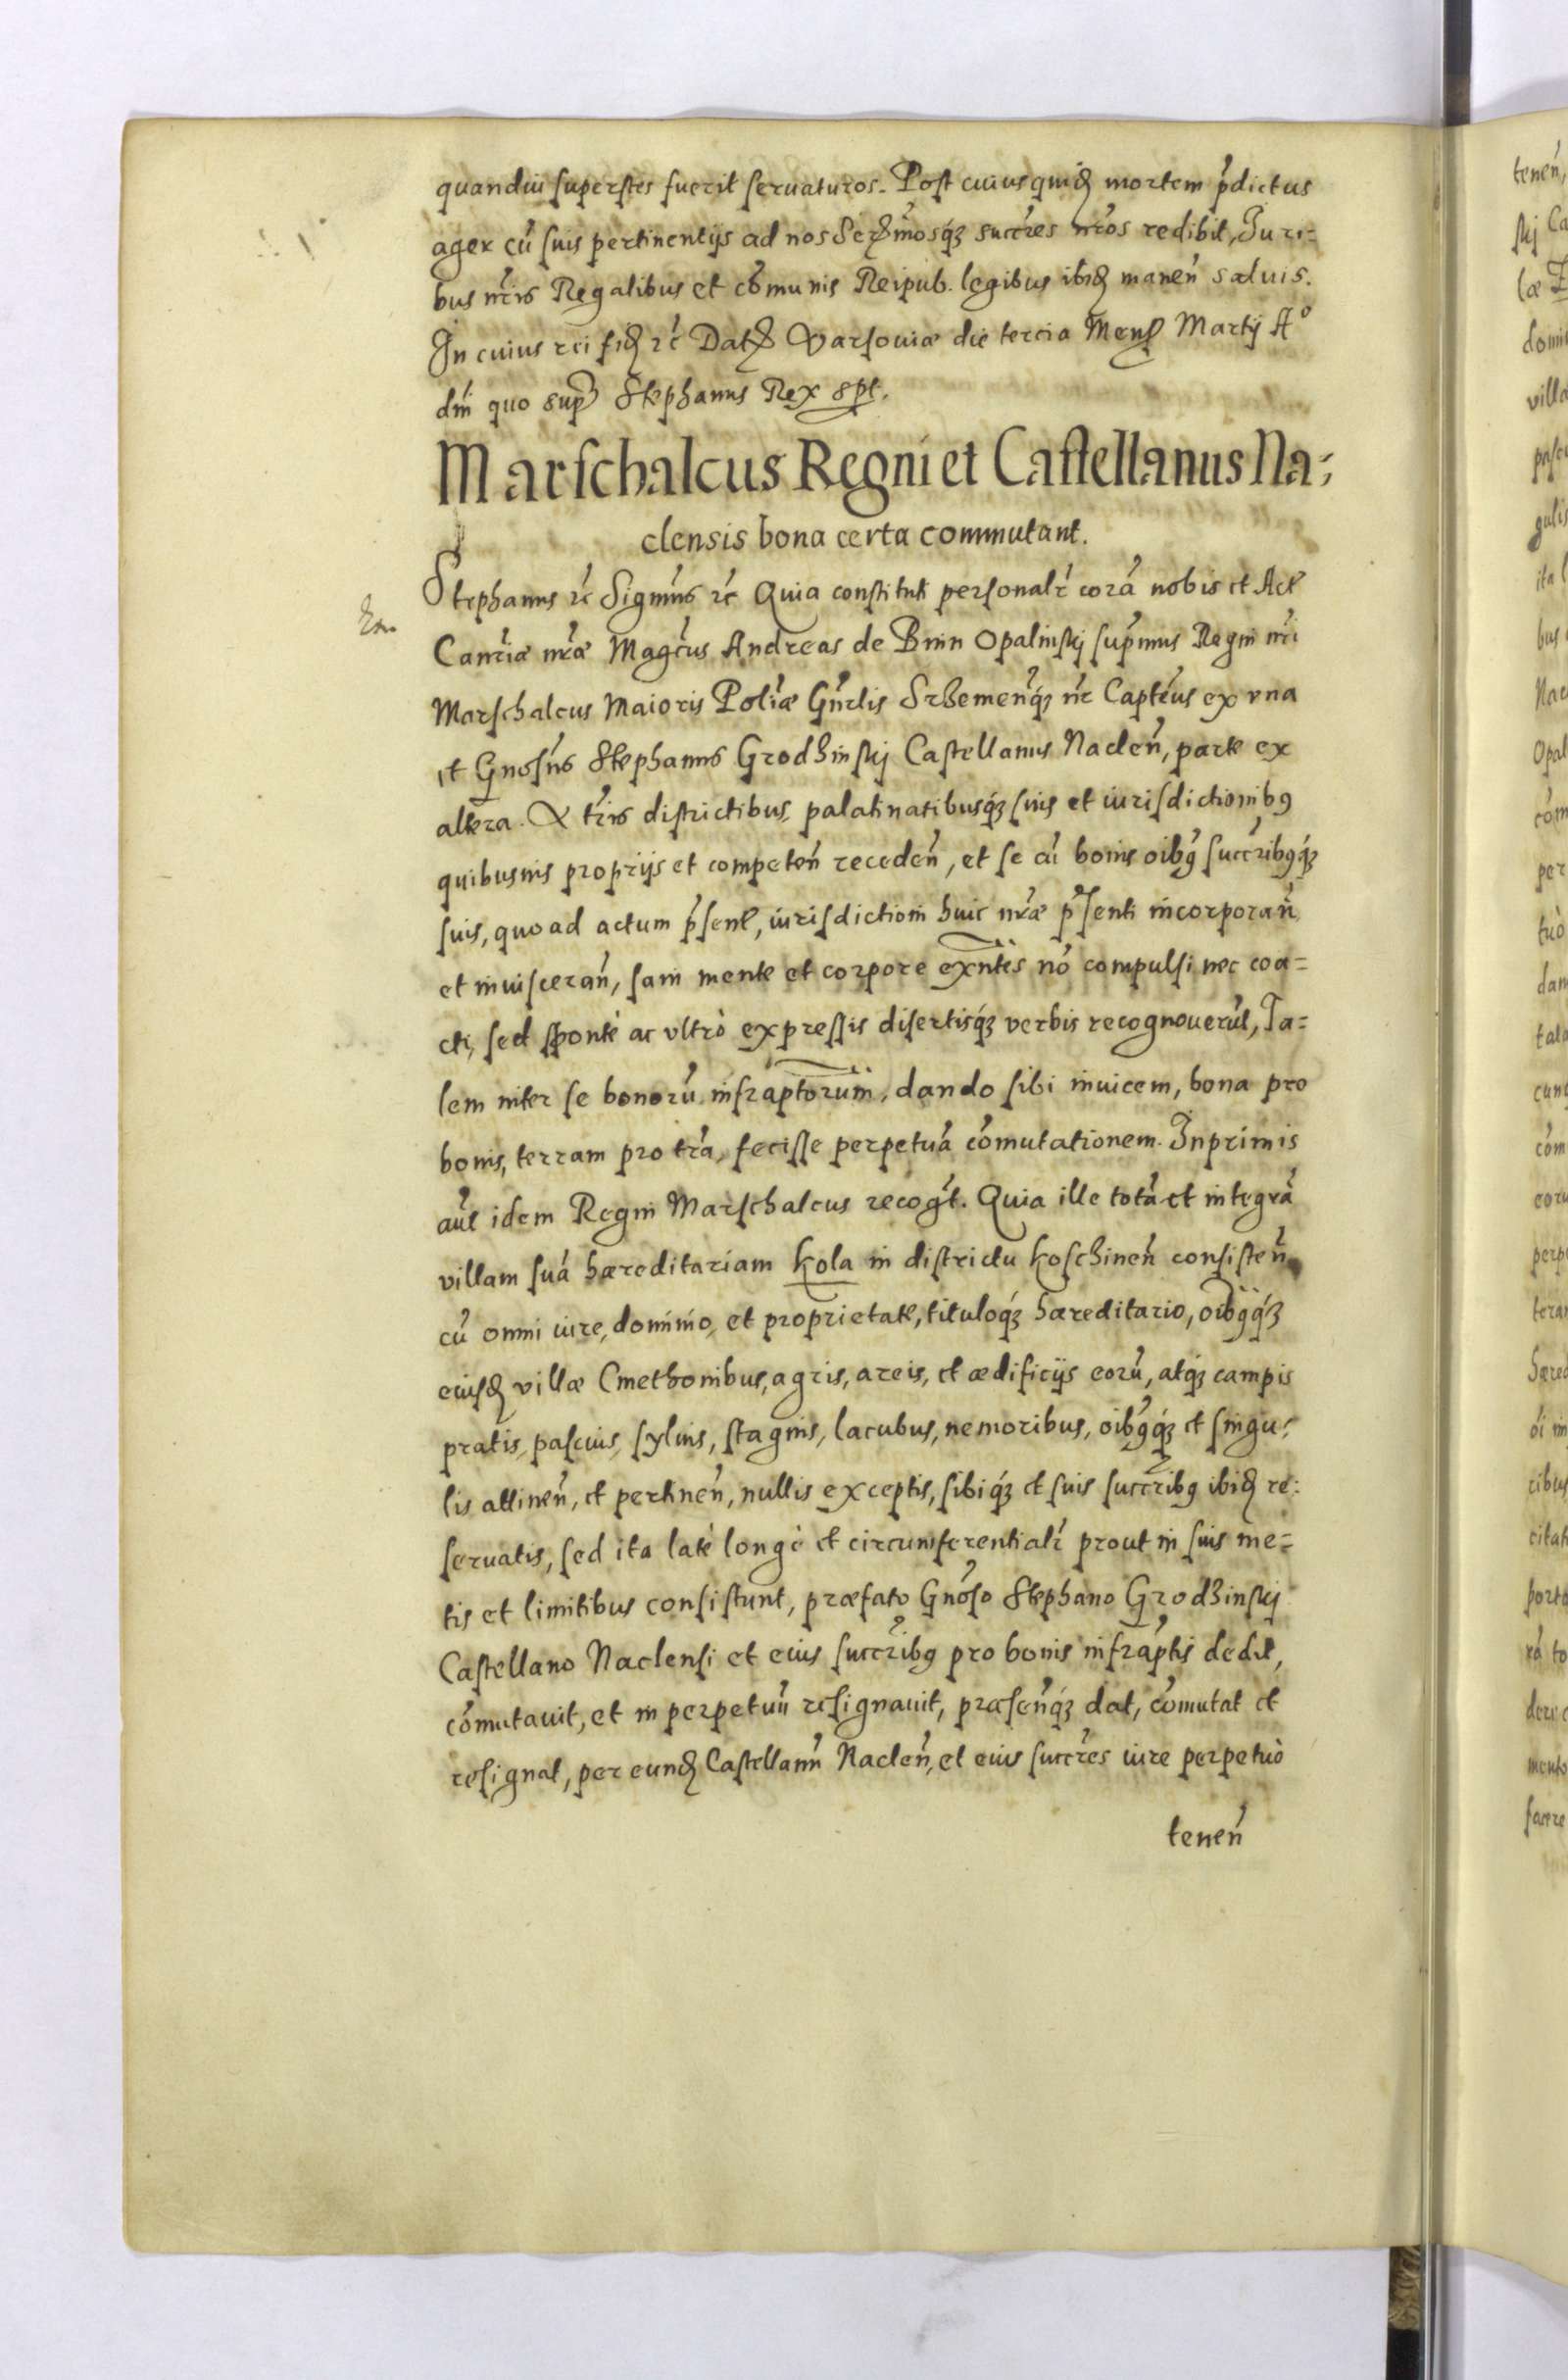 quandiu superstes fuerit seruaturos. Post cuius quidẽ mortem p̃dictus
ager cũ suis pertinentijs ad nos Serẽmosq́ʒ succr̃es nr̃os redibit, Iuri=
bus nr̃is Regalibus et cõmunis Reipub. legibus ibidẽ maneñ saluis.
In cuius rei fidẽ rc̃ Datũ Varsouiæ die tercia Mens̃ Martij A°
dñi quo sup̃ Stephanus Rex spt.
Marschalcus Regni et Castellanus Na=
clensis bona certa commutant.
Stephanus rc̃ Sigm̃s rc̃ Quia constituti personalr̃ corã nobis et Act̃
Cancr̃iæ nr̃æ Magc̃us Andreas de Bnin Opalinskj sup̃mus Regni nr̃i
Marschalcus Maioris Pol̃iæ Gnr̃lis Srzemeñq́ʒ nr̃ Capt̃eus ex vna
et Gnõsus Stephanus Grodzinskj Castellanus Nacleñ, parte ex
altera. A tr̃is districtibus, palatinatibusq́ʒ suis et iurisdictionibꝰ
quibusuis proprijs et competeñ recedeñ, et se cũ bonis oĩbꝰ succr̃ibꝰq́ʒ
suis, quo ad actum p̃sent̃, iurisdictioni huic nr̃æ p̃senti incorporañ
et inuiscerañ, sani mente et corpore exñtes nõ compulsi nec coa=
cti, sed sponte ac vltrò expressis disertisq́ʒ verbis recognouerũt, Ta=
lem inter se bonorũ infrap̃torum, dando sibi inuicem, bona pro
bonis, terram pro tr̃a, fecisse perpetuã cõmutationem. Inprimis
aũt idem Regni Marschalcus recog̃t. Quia ille totã et integrã
villam suã hæreditariam Kola in districtu Koschineñ consisteñ
cũ omni iure, dominio, et proprietate, tituloq́ʒ hæreditario, oĩbꝰq́ʒ
eiusdẽ villæ Cmethonibus, agris, areis, et ædificijs eorũ, atq́ʒ campis
pratis, pascuis, syluis, stagnis, lacubus, nemoribus, oĩbꝰq́ʒ et singu=
lis attineñ, et pertineñ, nullis exceptis, sibiq́ʒ et suis succr̃ibꝰ ibidẽ re=
seruatis, sed ita late longè et circumferentialr̃ prout in suis me=
tis et limitibus consistunt, præfato Gnõso Stephano Grodzinskj
Castellano Naclensi et eius succr̃ibꝰ pro bonis infrap̃tis dedit,
cõmutauit, et in perpetuũ resignauit, præseñq́ʒ dat, cõmutat et
resignat, per eundẽ Castellanũ Nacleñ, et eius succr̃es iure perpetuò
teneñ